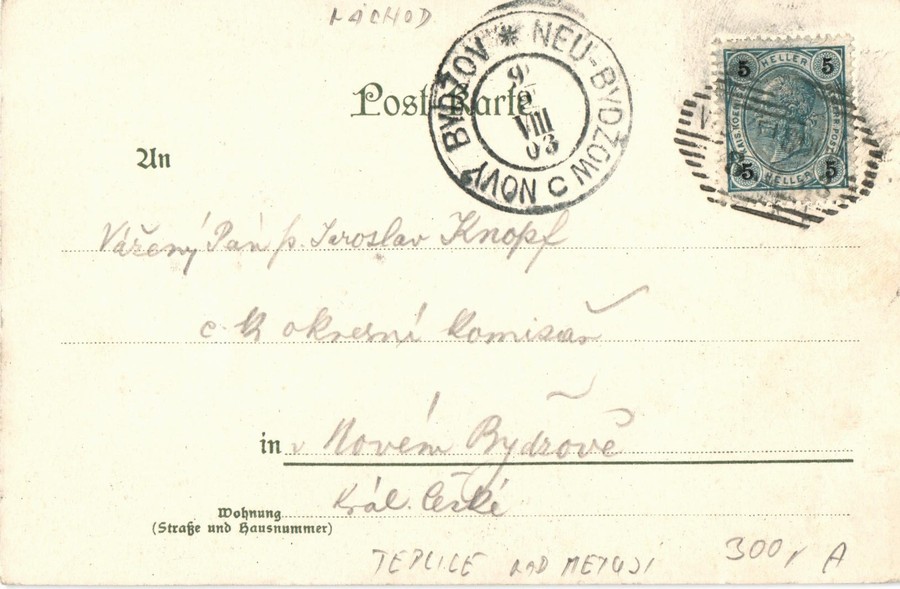 NÁCHOD
Post-Karte
NEU-BYDŽOW C NOVÝ BYDŽOV *
9
VIII
03
5 HELLER 5
5 HELLER 5
An
Vážený Pán p. Jaroslav Knopf
c. k okresní komisař
in v Novém Bydžově
Král. České
Wohnung
(Straße und Hausnummer)
TEPLICE NAD METUJÍ
300,- A